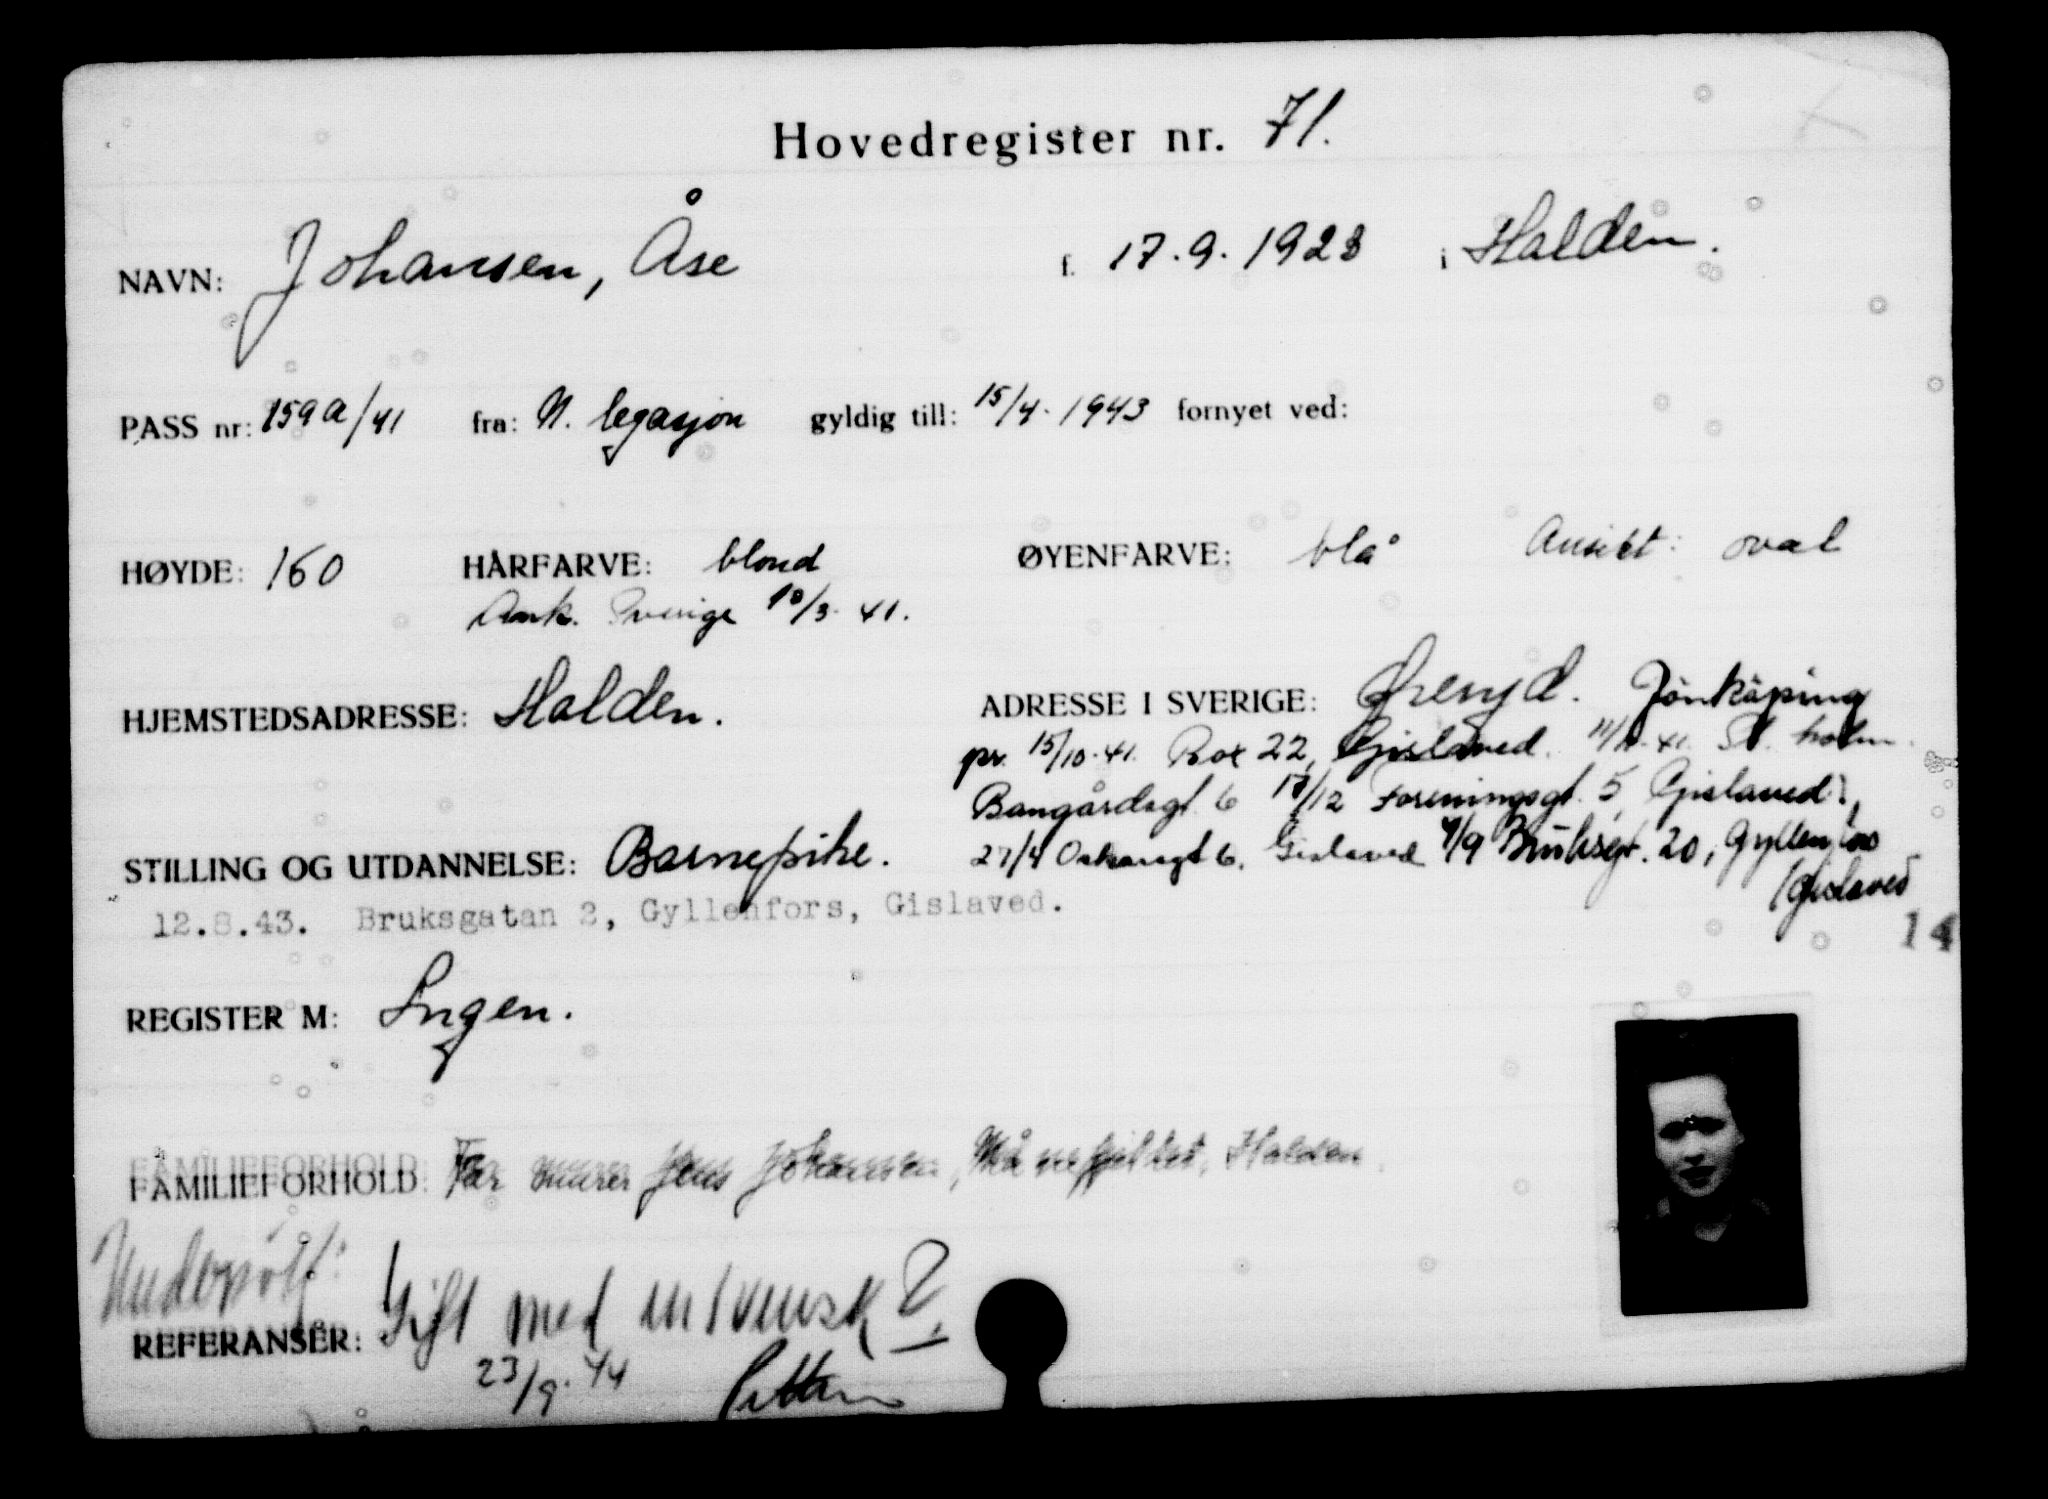 Hovedregister nr. 71.
NAVN: Johansen, Åse f. 17.9.1923 i Halden.
PASS nr: 159a/41 fra: N. legasjon gyldig till: 15/4. 1943 fornyet ved:
HØYDE: 160 HÅRFARVE: blond ØYENFARVE: blå Ansikt: oval
Ank. Sverige 10/3. 41.
HJEMSTEDSADRESSE: Halden. ADRESSE I SVERIGE: Jönköping
pr. 15/10.41. Box 22, Gislaved. St. holm.
Bangårdsgt. 6 Foreningsgt. 5, Gislaved.
STILLING OG UTDANNELSE: Barnepike. 27/4 6, Gislaved 4/9 Bruksgt. 20, Gyllenfors
Gislaved
12.8.43. Bruksgatan 2, Gyllenfors, Gislaved.
14
REGISTER M: Ingen.
FAMILIEFORHOLD: Far murer Jens Johansen, Halden.
REFERANSER: Gift med en svensk?
23/9. 44